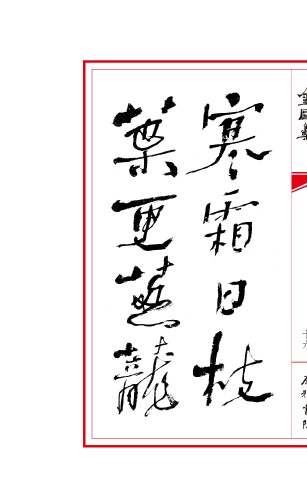 寒霜日枝
葉更蔥蘢